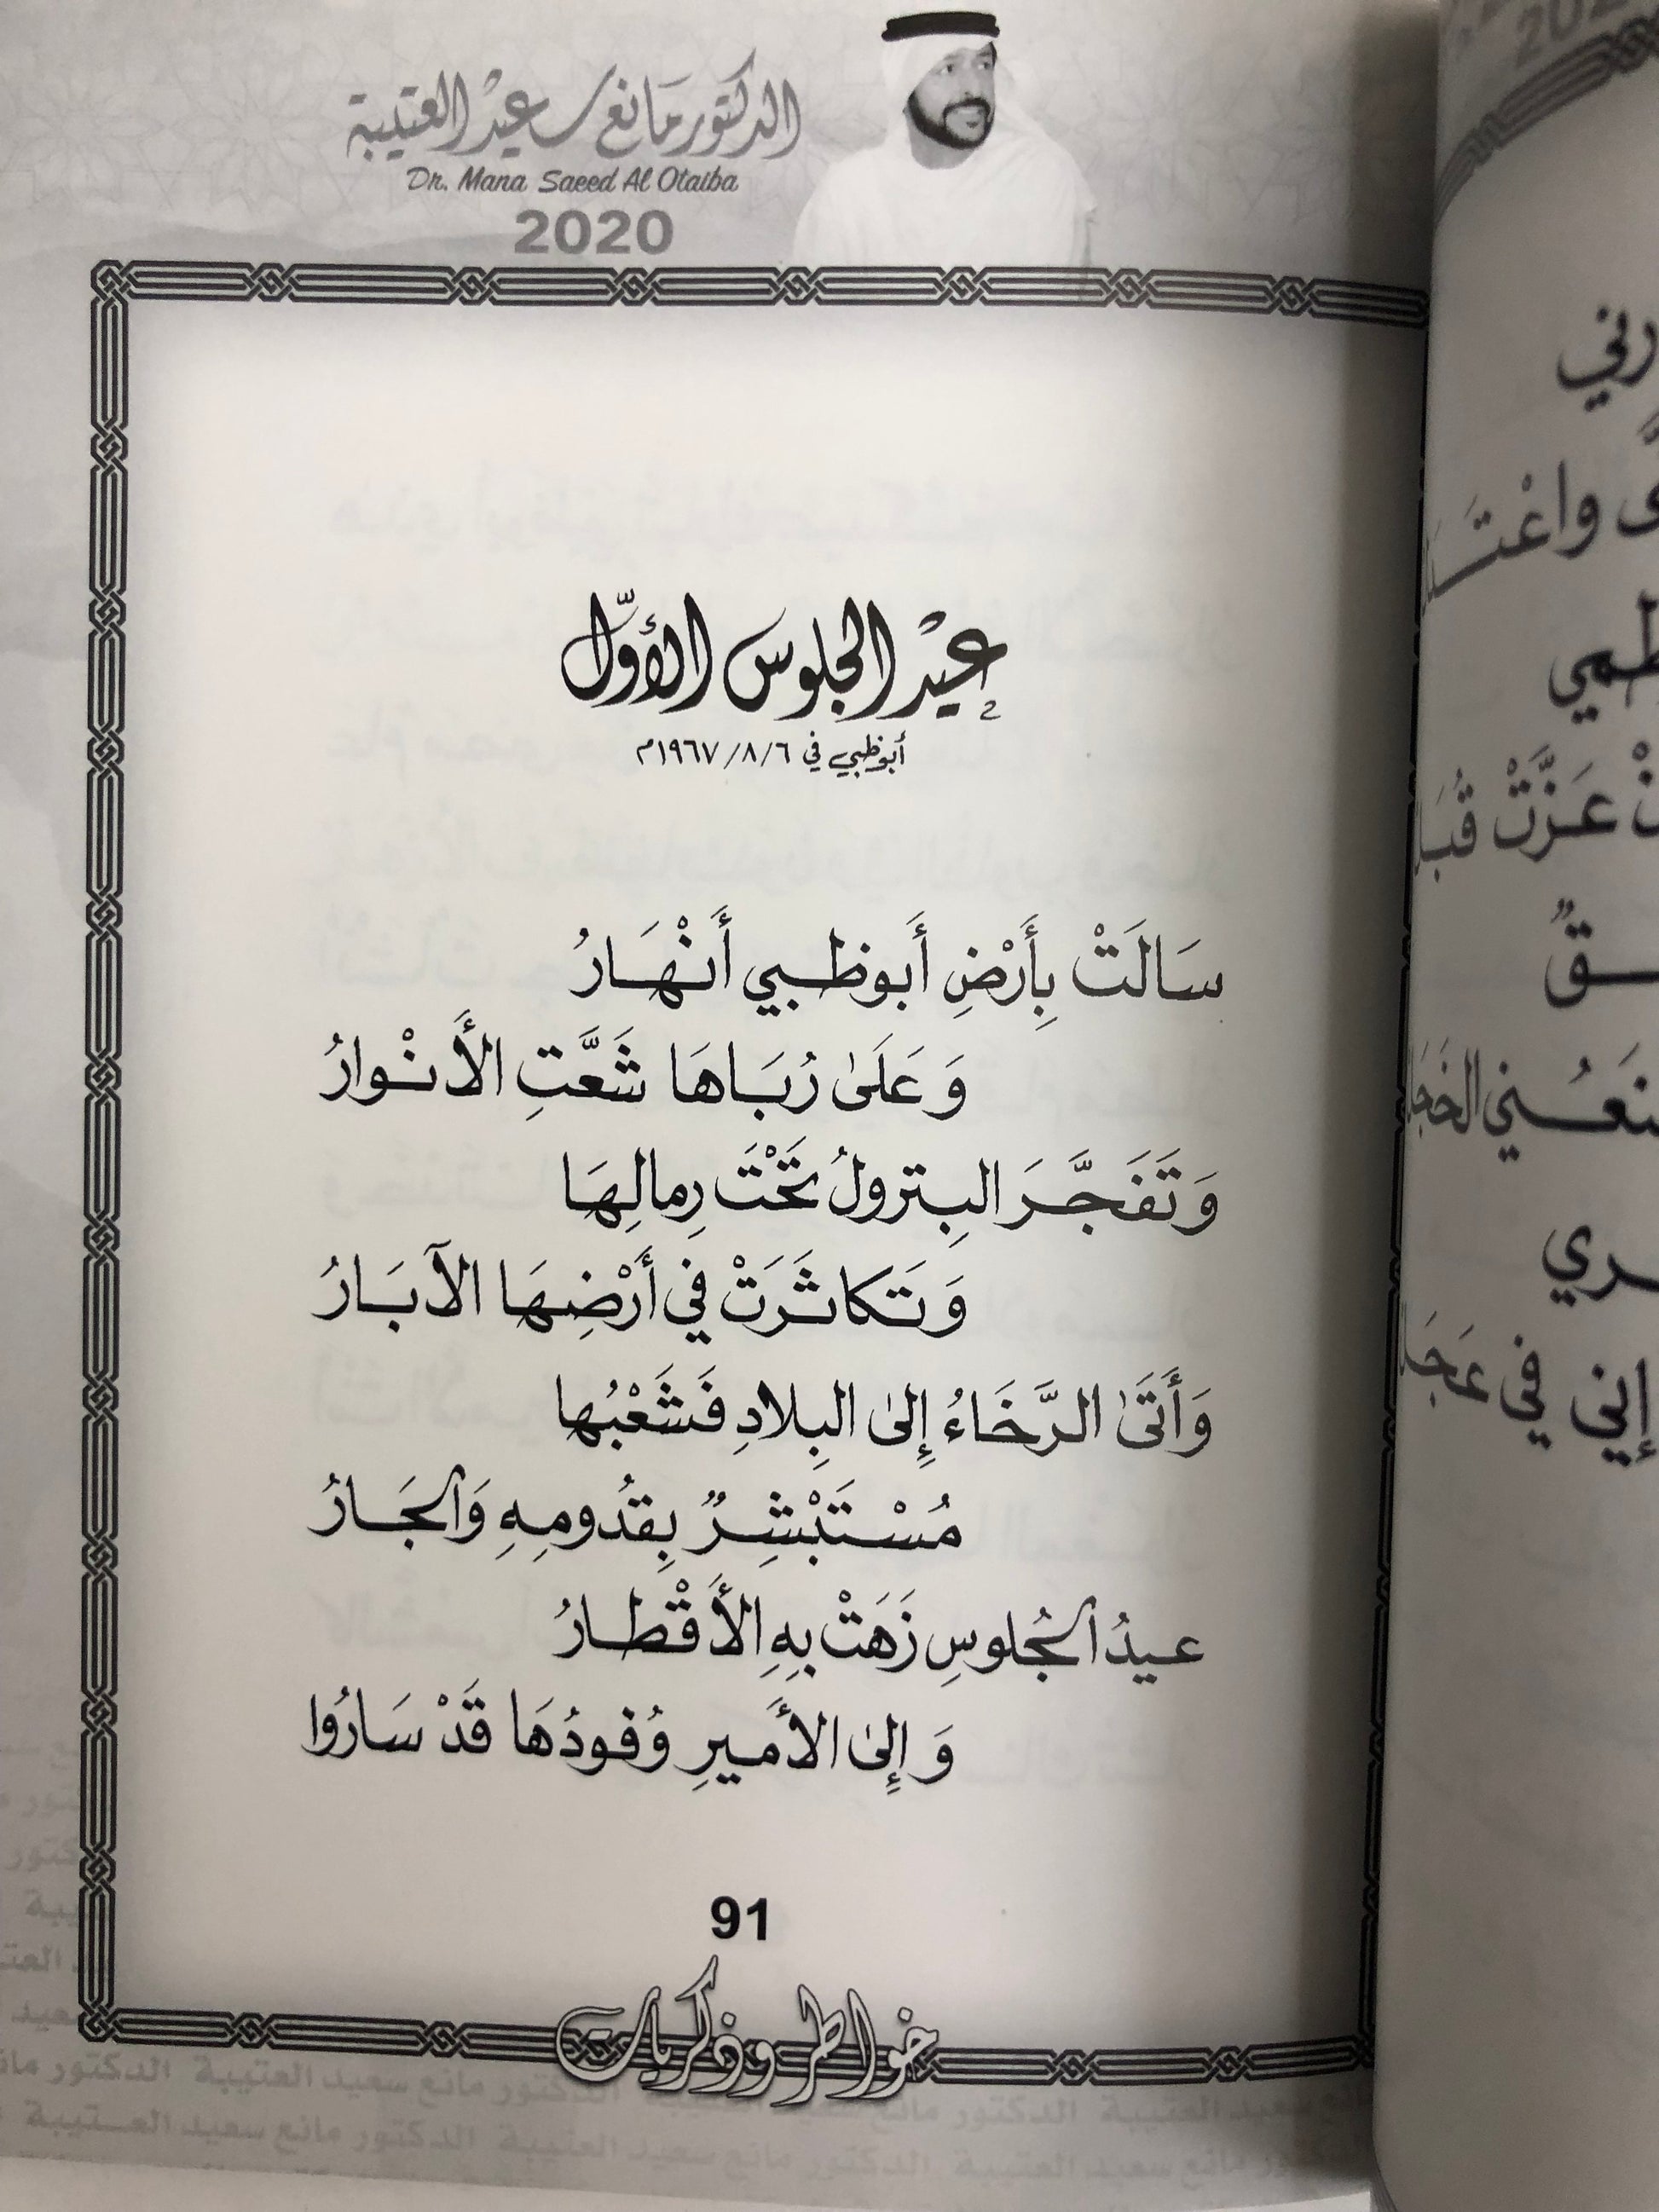 الدكتور مانع سعيد العتيبة
Dr. Mana Saeed Al Otaiba
2020
عيْد الجلوس الأوّل
أبوظبي في ٦/٨/١٩٦٧م
سَالَتْ بِأَرْضِ أَبوظبي أَنْهَارُ
وَعَلَىٰ رُبَاهَا شَعَّتِ الأَنْوارُ
وَتَفَجَّرَ البِترولُ تَحْتَ رِمالِهَا
وَتَكاثَرَتْ في أَرْضِهَا الآبَارُ
وَأَتَىٰ الرَّخَاءُ إِلىٰ البِلادِ فَشَعْبُها
مُسْتَبْشِرٌ بِقدُومِهِ وَالجَارُ
عيدُ الجُلوسِ زَهَتْ بِهِ الأَقْطارُ
وَإِلىٰ الأَميرِ وُفودُهَا قَدْ سَارُوا
91
خواطر وذكريات
الدكتور مانع سعيد العتيبة الدكتور مانع سعيد العتيبة
الدكتور مانع سعيد العتيبة الدكتور مانع سعيد العتيبة
رني
واعْتَ
ظمي
عَزَّتْ قُبَل
ـقٌ
ـنَعُني الخَجَل
ـري
إني في عَجَل